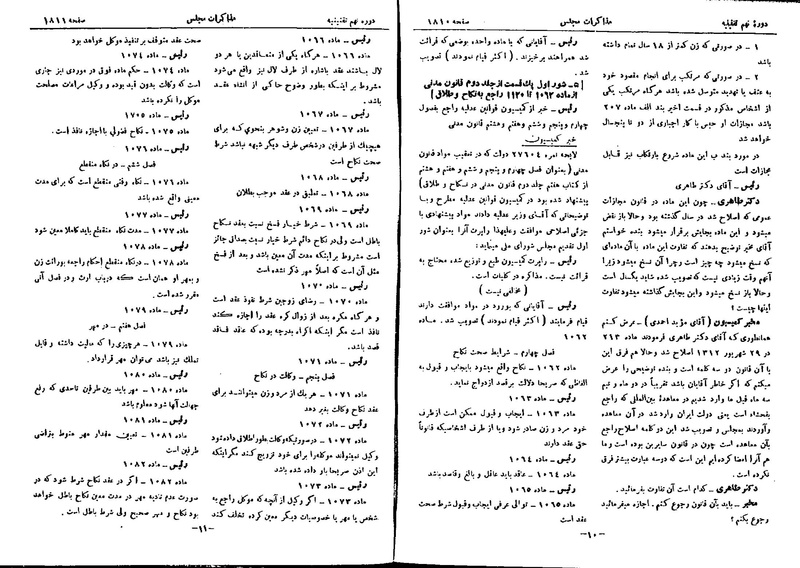 دوره نهم تقنینیه
مذاکرات مجلس
صفحه ۱۸۱۰
۱ - در صورتی که زن کمتر از ۱۸ سال تمام داشته
باشد
۲ - در صورتی که مرتکب برای انجام مقصود خود
به عنف یا تهدید متوسل شده باشد هرگاه مرتکب یکی
از اشخاص مذکور در قسمت اخیر بند الف ماده ۲۰۷
باشد مجازات او حبس با کار اجباری از دو تا پنجسال
خواهد شد
در مورد بند ب این ماده شروع بارتکاب نیز قابل
مجازات است
رئیس - آقای دکتر طاهری
دکتر طاهری - چون این ماده در قانون مجازات
عمومی که اصلاح شد در سال گذشته بود وحالا باز نقض
میشود و این ماده بجایش برقرار میشود بنده خواستم
آقای مخبر توضیح بدهند که تفاوت این ماده با آن ماده‌ای
که نسخ میشود چه چیز است وچرا آن نسخ میشود زیرا
آنهم وقت زیادی نیست که تصویب شده شاید یکسال است
وحالا باز نسخ میشود واین بجایش گذاشته میشود تفاوت
اینها چیست؟
مخبر کمیسیون (آقای مؤید احمدی) - عرض کنم
همانطوری که آقای دکتر طاهری فرمودند ماده ۲۱۳
در ۲۹ شهریور ۱۳۱۲ اصلاح شد وحالا هم فرق این
با آن قانون در سه کلمه است و بنده توضیحی را عرض
میکنم که اگر خاطر آقایان باشد تقریباً در دو ماه و نیم
سه ماه قبل ما وارد شدیم در معاهدۀ بین‌المللی که راجع
بفحشاء است یعنی دولت ایران وارد شد در آن معاهده
وآوردند بمجلس و تصویب شد این دو کلمه اصلاح راجع
بآن معاهده است چون در قانون سایرین بوده است و ما
هم آنرا امضا کرده‌ایم این است که دوسه عبارت بیشتر فرق
نکرده است.
دکتر طاهری - کدام است آن تفاوت بفرمائید.
مخبر - باید بآن قانون رجوع کنم. اجازه میفرمائید
رجوع بکنم؟
رئیس - آقایانی که با ماده واحده بوضعی که قرائت
شد همراهند برخیزند. (اکثر قیام نمودند) تصویب
شد.
[۵ - شور اول یک قسمت از جلد دوم قانون مدنی
از ماده ۱۰۶۲ تا ۱۱۲۰ راجع به نکاح و طلاق]
رئیس - خبر از کمیسیون قوانین عدلیه راجع بفصول
چهارم وپنجم وششم وهفتم وهشتم قانون مدنی
خبر کمیسیون
لایحه نمره ۲۷۶۰۴ دولت که در تعقیب مواد قانون
مدنی (بعنوان فصل چهارم و پنجم و ششم و هفتم و هشتم
از کتاب هفتم جلد دوم قانون مدنی در نکاح و طلاق)
پیشنهاد شده بود در کمیسیون قوانین عدلیه مطرح وبا
توضیحاتی که آقای وزیر عدلیه دادند مواد پیشنهادی با
جزئی اصلاحی موافقت وعلیهذا راپرت آنرا بعنوان شور
اول تقدیم مجلس شورای ملی مینماید:
رئیس - راپرت کمیسیون طبع و توزیع شده محتاج به
قرائت نیست. مذاکره در کلیات است.
(مخالفی نیست)
رئیس - آقایانی که بورود در مواد موافقت دارند
قیام فرمایند (اکثر قیام نمودند) تصویب شد. ماده
۱۰۶۲
فصل چهارم - شرایط صحت نکاح
ماده ۱۰۶۲ - نکاح واقع میشود بایجاب و قبول به
الفاظی که صریحاً دلالت برقصد ازدواج نماید.
رئیس - ماده ۱۰۶۳
ماده ۱۰۶۳ - ایجاب و قبول ممکن است از طرف
خود مرد و زن صادر شود ویا از طرف اشخاصیکه قانوناً
حق عقد دارند
رئیس - ماده ۱۰۶۴
ماده ۱۰۶۴ - عاقد باید عاقل و بالغ وقاصد باشد
رئیس - ماده ۱۰۶۵
ماده ۱۰۶۵ - توالی عرفی ایجاب وقبول شرط صحت
عقد است
-۱۰-
دوره نهم تقنینیه
مذاکرات مجلس
صفحه ۱۸۱۱
رئیس - ماده ۱۰۶۶
ماده ۱۰۶۶ - هرگاه یکی از متعاقدین یا هر دو
لال باشند عقد باشاره از طرف لال نیز واقع می‌شود
مشروط بر اینکه بطور وضوح حاکی از انشاء عقد
باشد
رئیس - ماده ۱۰۶۷
ماده ۱۰۶۷ - تعیین زن وشوهر بنحوی که برای
هیچیک از طرفین درشخص طرف دیگر شبهه نباشد شرط
صحت نکاح است
رئیس - ماده ۱۰۶۸
ماده ۱۰۶۸ - تعلیق در عقد موجب بطلان
رئیس - ماده ۱۰۶۹
ماده ۱۰۶۹ - شرط خیار فسخ نسبت بعقد نکاح
باطل است ولی در نکاح دائم شرط خیار نسبت بصداق جائز
است مشروط براینکه مدت آن معین باشد و بعد از فسخ
مثل آن است که اصلاً مهر ذکر نشده است
رئیس - ماده ۱۰۷۰
ماده ۱۰۷۰ - رضای زوجین شرط نفوذ عقد است
و هرگاه مکره بعد از زوال کره عقد را اجازه کند
نافذ است مگر اینکه اکراه بدرجه بوده که عاقد فاقد
قصد باشد.
رئیس - ماده ۱۰۷۱
فصل پنجم - وکالت در نکاح
ماده ۱۰۷۱ - هر یک از مرد وزن میتواند برای
عقد نکاح وکالت بغیر دهد
رئیس - ماده ۱۰۷۲
ماده ۱۰۷۲ - درصورتیکه وکالت بطور اطلاق داده شود
وکیل نمیتواند موکله را برای خود تزویج کند مگر اینکه
این اذن صریحاً باو داده شده باشد
رئیس - ماده ۱۰۷۳
ماده ۱۰۷۳ - اگر وکیل از آنچه که موکل راجع به
شخص یا مهر یا خصوصیات دیگر معین کرده تخلف کند
صحت عقد متوقف بر تنفیذ موکل خواهد بود
رئیس - ماده ۱۰۷۴
ماده ۱۰۷۴ - حکم ماده فوق در موردی نیز جاری
است که وکالت بدون قید بوده و وکیل مراعات مصلحت
موکل را نکرده باشد
رئیس - ماده ۱۷۰۵
ماده ۱۰۷۵ - نکاح فضولی با اجازه نافذ است.
رئیس - ماده ۱۰۷۶
فصل ششم - در نکاح منقطع
ماده ۱۰۷۶ - نکاح وقتی منقطع است که برای مدت
معینی واقع شده باشد
رئیس - ماده ۱۰۷۷
ماده ۱۰۷۷ - مدت نکاح منقطع باید کاملا معین شود
رئیس - ماده ۱۰۷۸
ماده ۱۰۷۸ - در نکاح منقطع احکام راجعه بوراثت زن
و بمهر او همان است که درباب ارث و در فصل آتی
مقرر شده است.
رئیس - ماده ۱۰۷۹
فصل هفتم - در مهر
ماده ۱۰۷۹ - هر چیزی را که مالیت داشته و قابل
تملک نیز باشد می‌توان مهر قرار داد.
رئیس - ماده ۱۰۸۰
ماده ۱۰۸۰ - مهر باید بین طرفین تاحدی که رفع
جهالت آنها شود معلوم باشد
رئیس - ماده ۱۰۸۱
ماده ۱۰۸۱ - تعیین مقدار مهر منوط بتراضی
طرفین است
رئیس - ماده ۱۰۸۲
ماده ۱۰۸۲ - اگر در عقد نکاح شرط شود که در
صورت عدم تادیه مهر در مدت معین نکاح باطل خواهد
بود نکاح و مهر صحیح ولی شرط باطل است.
-۱۱-